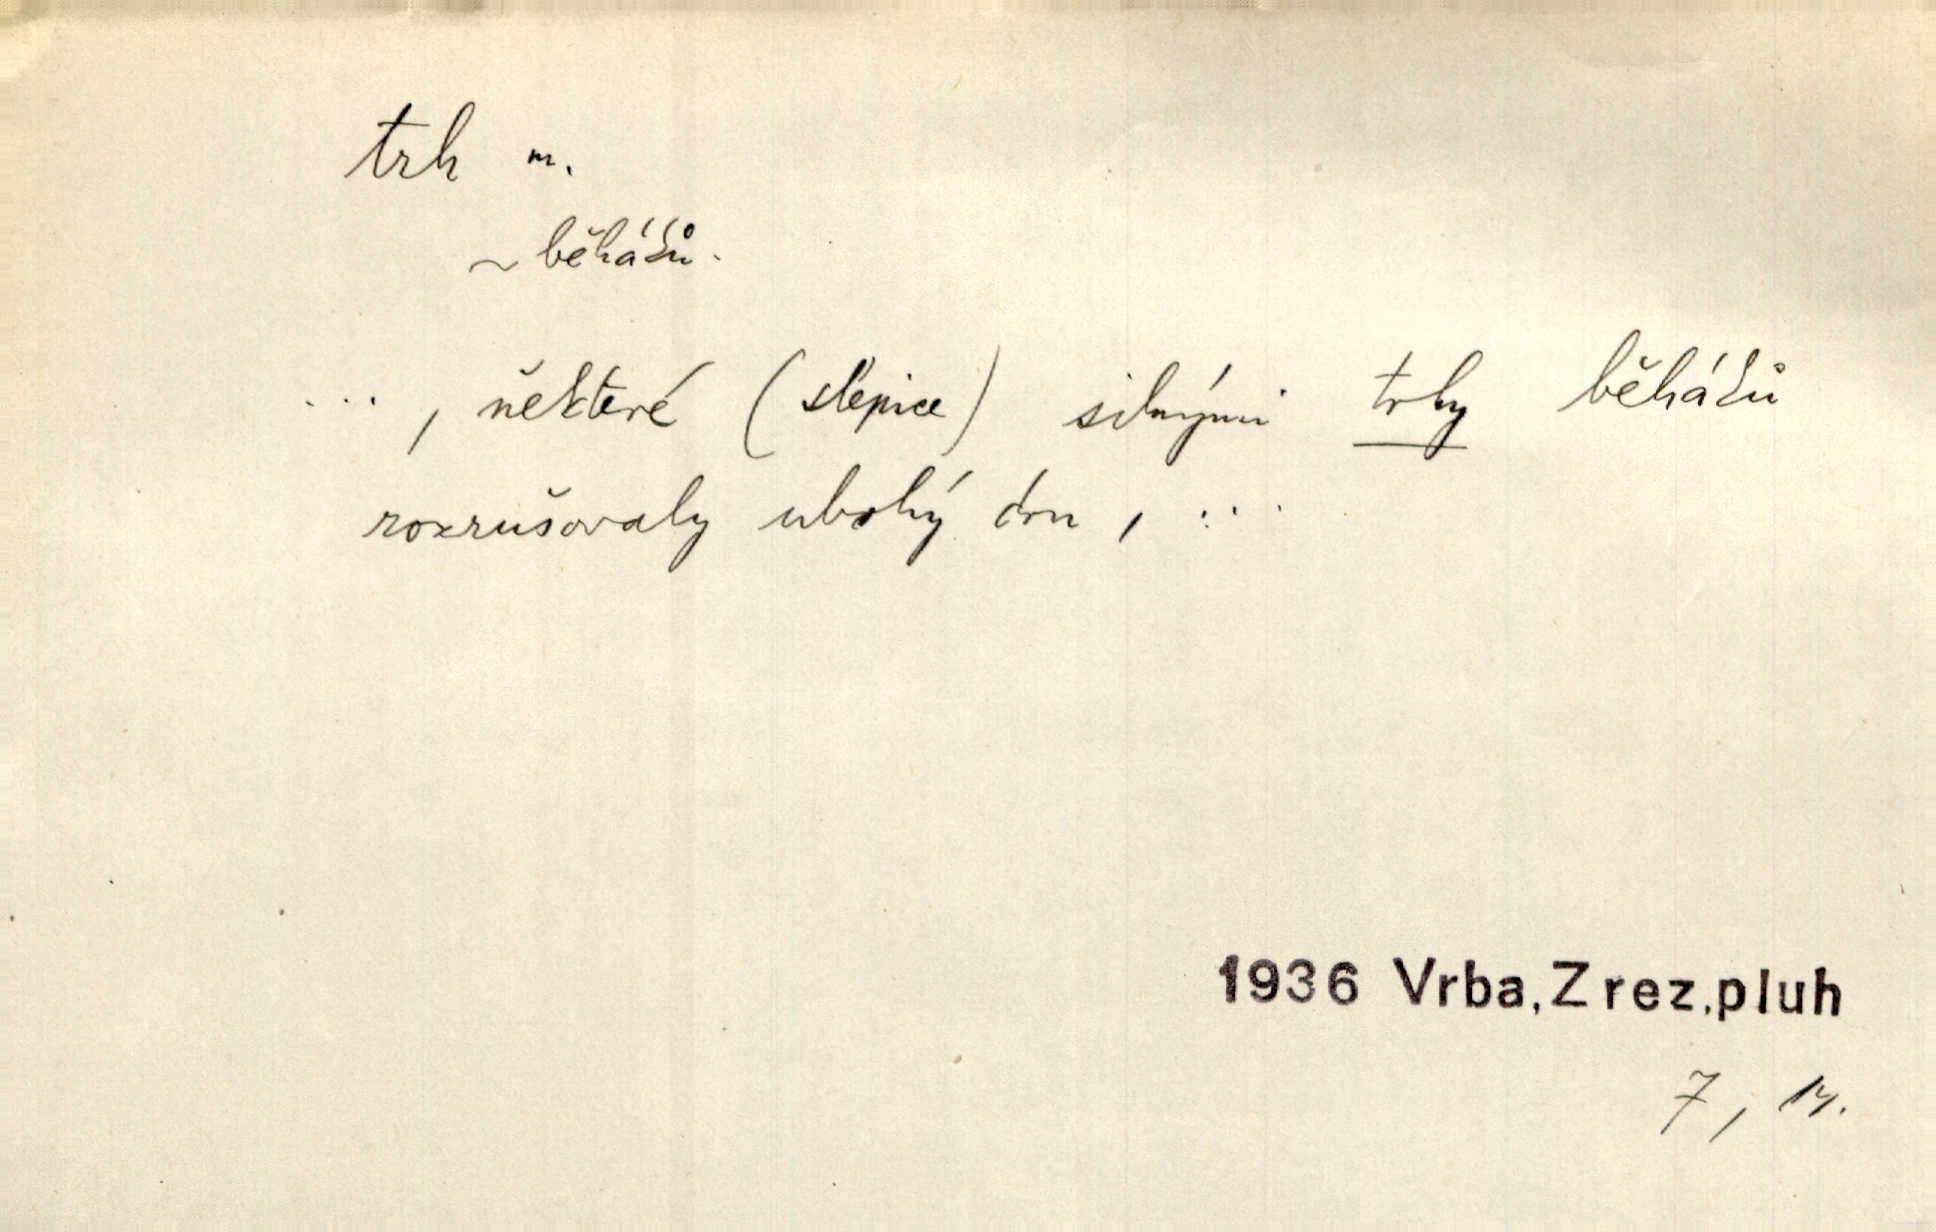 trh m.
~ běháků.
..., některé (slepice) silnými trhy běháků
rozrušovaly ubohý drn, ...
1936 Vrba, Z rez.pluh
7,